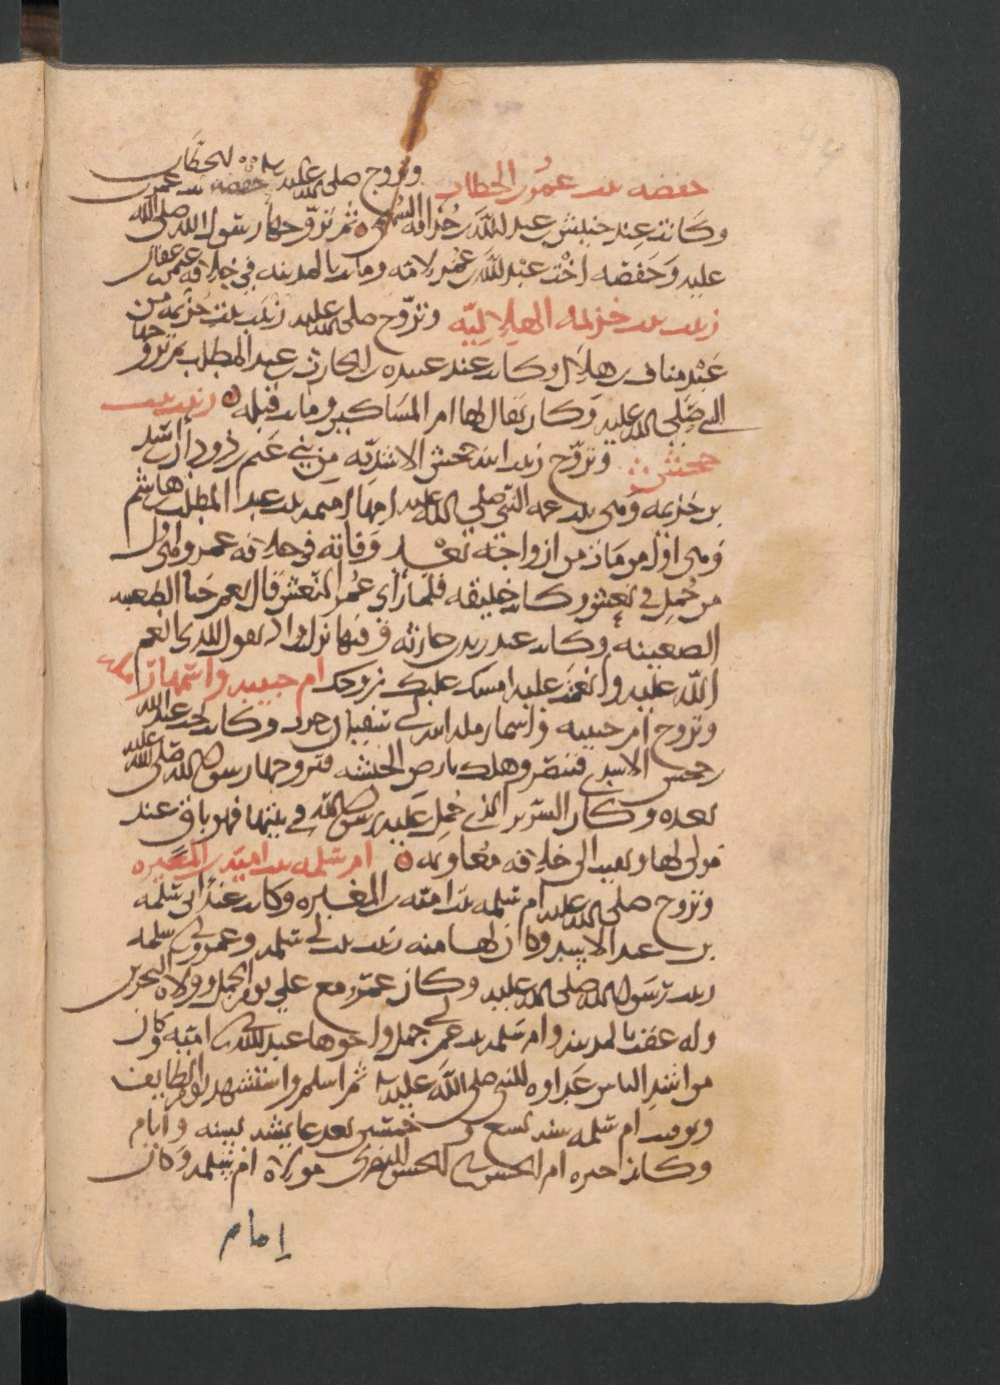 حفصه بنت عمر بن الخطاب وتزوج صلى الله عليه حفصه بنت عمر بن الخطاب
وكانت عند خنيس بن عبد الله بن حذافه السهمي ثم تزوجها رسول الله صلى الله
عليه وحفصه اخت عبد الله بن عمر لامه وماتت بالمدينه في خلافه عثمن بن عفان
زينب بنت خزيمه الهلاليه وتزوج صلى الله عليه زينب بنت خزيمه من
عبد مناف بن هلال وكانت عند عبيده بن الحارث بن عبد المطلب ثم تزوجها
النبي صلى الله عليه وكان يقال لها ام المساكين وماتت قبله زينب بنت
جحش وتزوج زينب ابنه جحش الاسديه من بني غنم بن دودان بن اسد
بن خزيمه وهي بنت عمه النبي صلى الله عليه امها اميمه بنت عبد المطلب بن هاشم
وهي اول من مات من ازواجه بعد وفاته في خلافه عمر وهي اول
من حمل في نعش وكانت خليقه فلما رأى عمر النعش قال نعم خبا الظعينه
الضعينه وكانت عند زيد بن حارثه ففيها نزل واذ يقول للذي انعم
الله عليه وانعمت عليه امسك عليك زوجك ام حبيبه واسمها رمله
وتزوج ام حبيبه واسمها رمله ابنه ابي سفيان بن حرب وكانت تحت عبيد الله
بن جحش الاسدي فتنصر وهلك بارض الحبشه فتزوجها رسول الله صلى الله عليه
بعده وكان السرير الذي حمل عليه رسول الله في بيتها فهو باق عند
مولى لها وبقيت الى خلافه معاويه ام سلمه بنت اميه بن المغيره
وتزوج صلى الله عليه ام سلمه بنت اميه بن المغيره وكانت عند ابي سلمه
بن عبد الاسد وكان لها منه زينب بنت ابي سلمه وعمر بن ابي سلمه
ربيب رسول الله صلى الله عليه وكان عمر مع علي يوم الجمل وولاه البحرين
وله عقب بالمدينه وام سلمه بنت عم ابي جهل واخوها عبد الله بن ابي اميه كان
من اشد الناس عداوه للنبي صلى الله عليه ثم اسلم واستشهد يوم الطايف
وتوفيت ام سلمه سنه تسع وخمسين بعد عايشه بسنه وايام
وكانت خيره ام الحسن بن ابي الحسن البصري مولاه ام سلمه وكان
امام